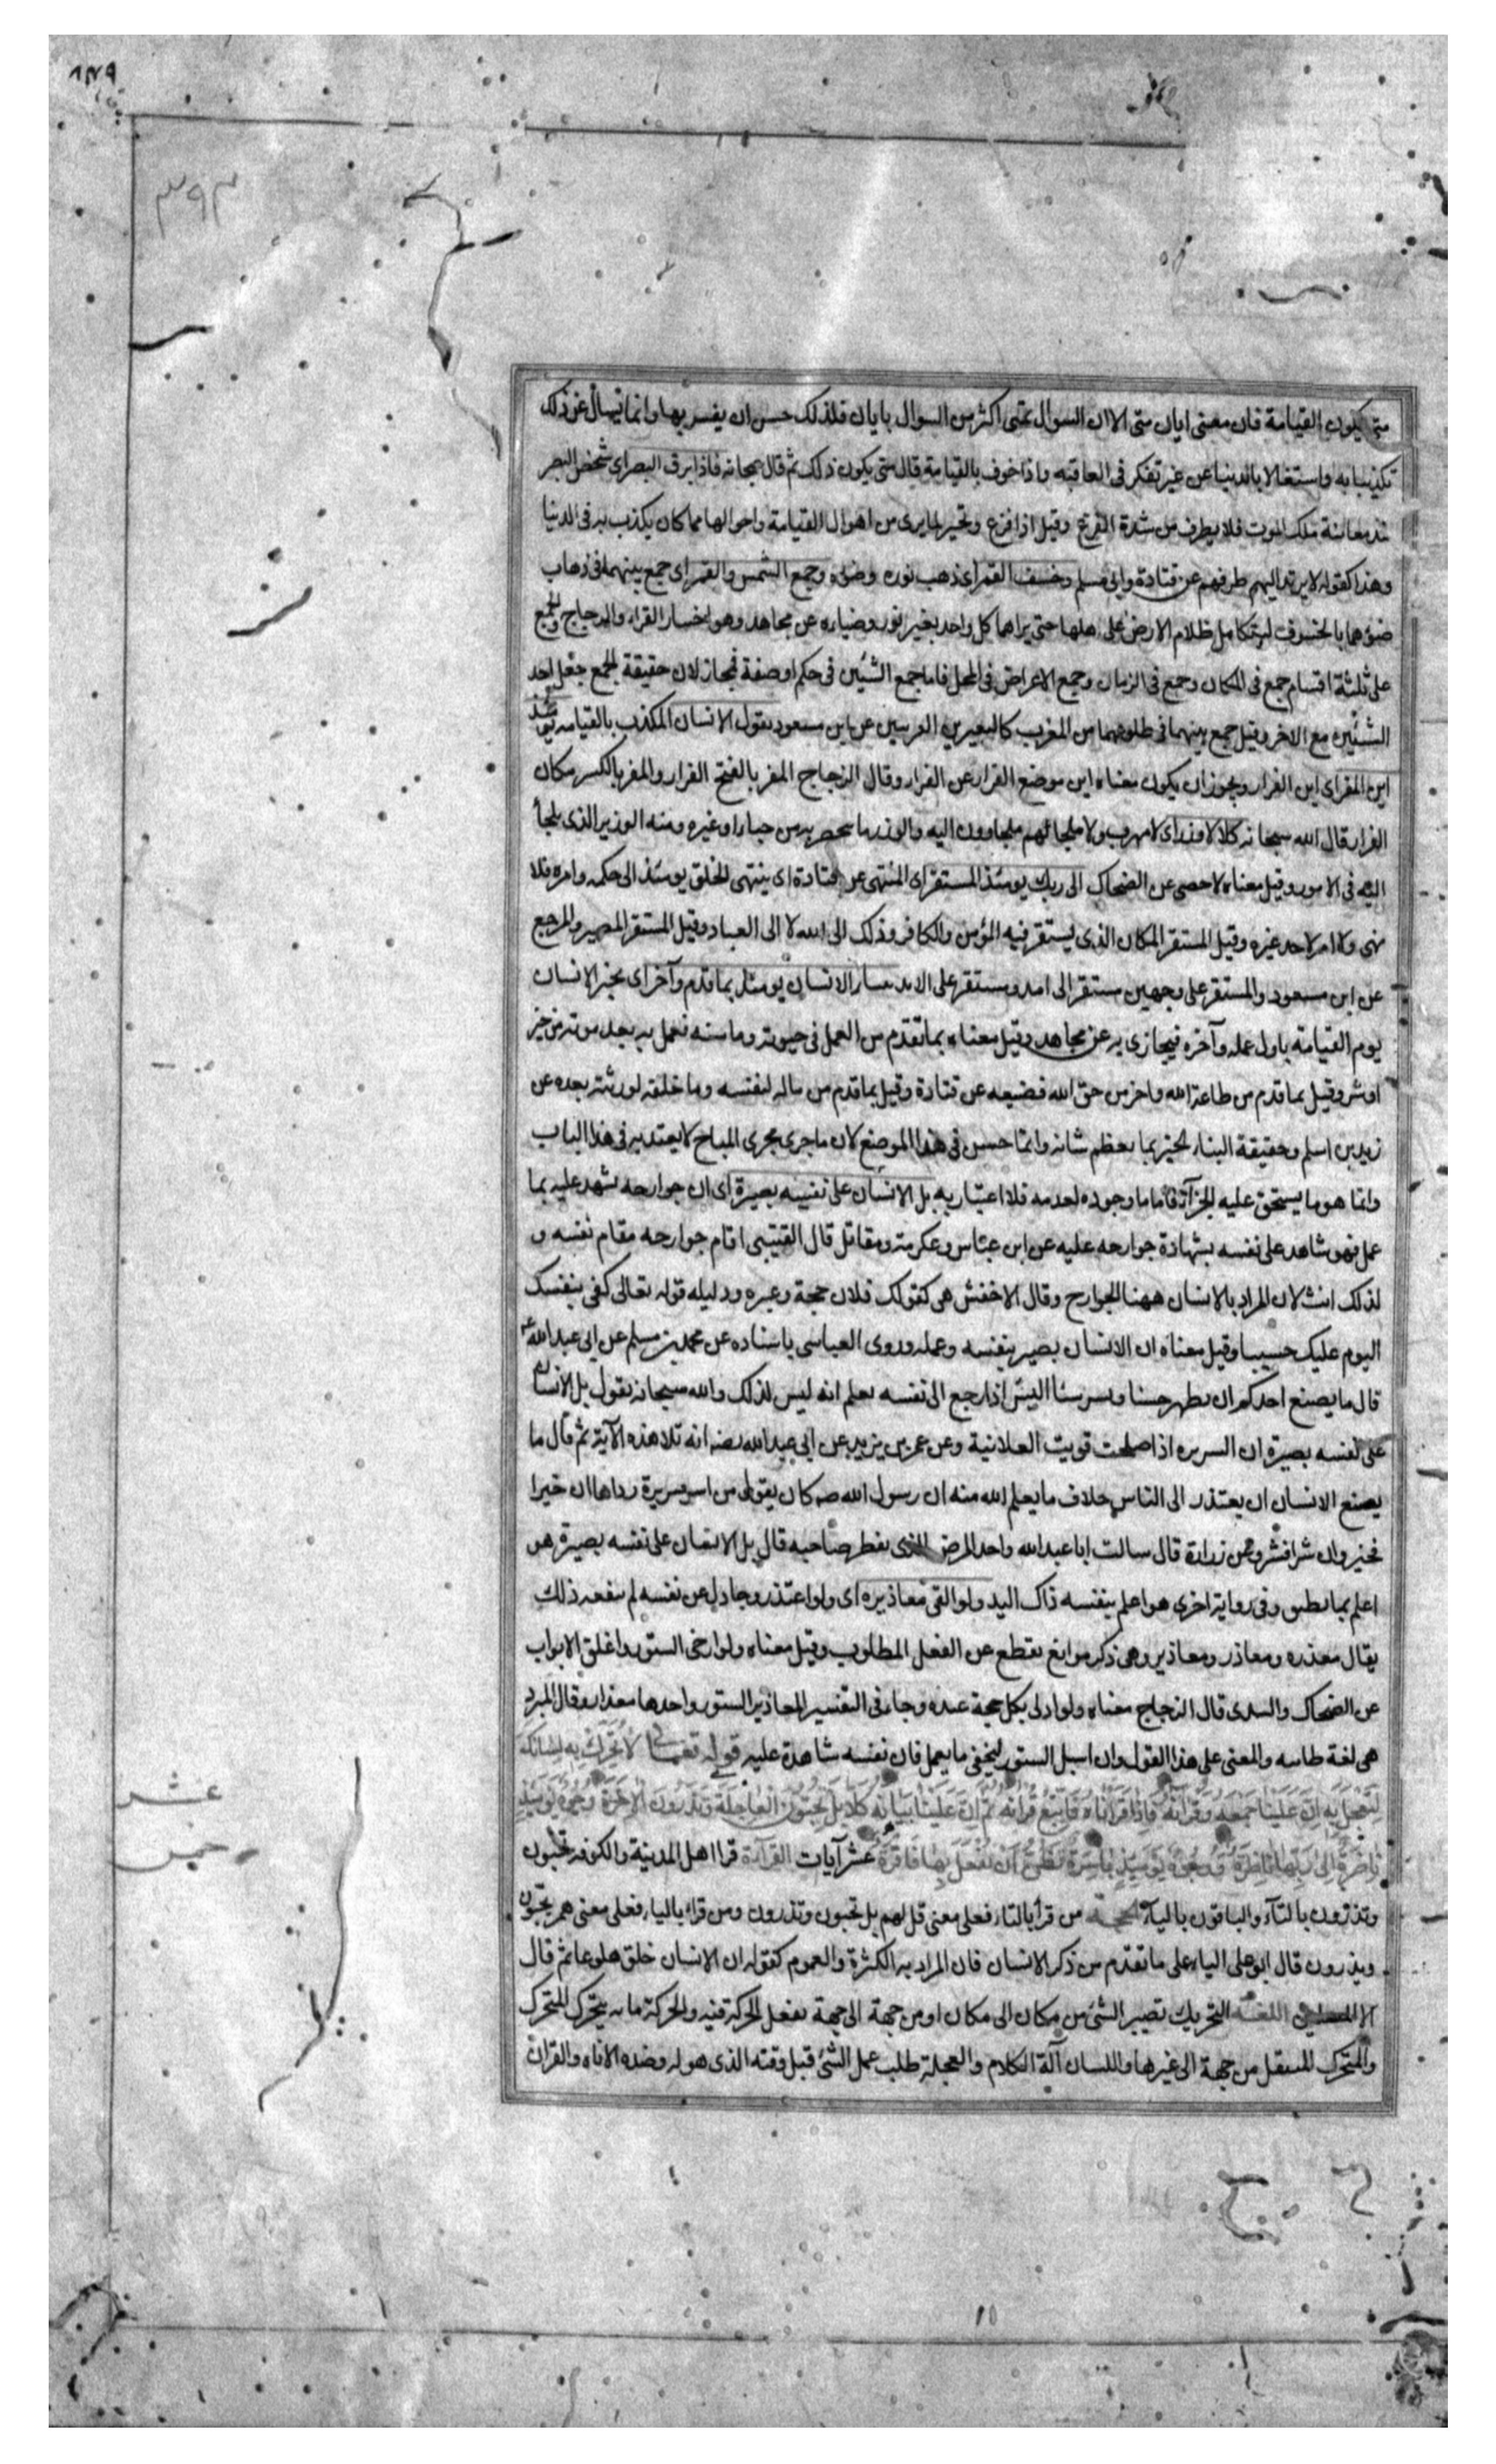 ٣٩٣
متى يكون القيامة فان معنى ايان متى الا ان السوال بمتى اكثر من السوال بايان فلذلك حسن ان يفسر بها وانما تسال عن ذلك
تكذيبا به واستغالا بالدنيا من غير تفكر فى العاقبه واذا خوف بالقيامة قال متى يكون ذلك ثم قال سبحانه فاذا برق البصر اى شخص البصر
عند معاينة ملك الموت فلا يطرف من شدة الفزع وقيل اذا فزع وتحير لما يرى من اهوال القيامة واحوالها مما كان يكذب به فى الدنيا
وهذا كقوله لا يرتد اليهم طرفهم عن قتادة وابى مسلم وخسف القمر اى ذهب نوره وضوء وجمع الشمس والقمر اى جمع بينهما فى ذهاب
ضوءهما بالخسوف ليتكامل ظلام الارض على اهلها حتى يراهما كل واحد بغير نور وضياء عن مجاهد وهو اختيار الفراء والزجاج والجمع
على ثلثة اقسام جمع فى المكان وجمع فى الزمان وجمع الاعراض فى المحل فاما جمع الشئين فى حكم او صفة فمجاز لان حقيقة الجمع جعل احد
الشئين مع الاخر وقيل جمع بينهما فى طلوعهما من المغرب كالبعيرين القرينين عن ابن مسعود يقول الانسان المكذب بالقيامه يومئذ
اين المفر اى اين الفرار ويجوز ان يكون معناه اين موضع الفرار عن الفراء وقال الزجاج المفر بالفتح الفرار والمفر بالكسر مكان
الفرار قال الله سبحانه كلا لا وزر اى لا مهرب ولا ملجا لهم يلجاون اليه والوزر ما يتحصن به من جبل او غيره ومنه الوزير الذى يلجأ
اليه فى الامور وقيل معناه لا حصن عن الضحاك الى ربك يومئذ المستقر اى المنتهى عن قتادة اى ينتهى الخلق يومئذ الى حكمه وامره فلا
نهى ولا امر لاحد غيره وقيل المستقر المكان الذى يستقر فيه المؤمن والكافر وذلك الى الله لا الى العباد وقيل المستقر المصير والمرجع
عن ابن مسعود والمستقر على وجهين مستقر الى امد ومستقر على الابد ينبأ الانسان يومئذ بما قدم وآخر اى يخبر الانسان
يوم القيامة باول عمله وآخره فيجازى به عن مجاهد وقيل معناه بما تقدم من العمل فى حيوته وما سنه فعمل به بعد موته من خير
او شر وقيل بما قدم من طاعة الله واخر من حق الله فضيعه عن قتادة وقيل بما قدم من ماله لنفسه وما خلفه لورثته بعده عن
زيد بن اسلم وحقيقة النباء الخبر بما يعظم شانه وانما حسن فى هذا الموضع لان ما جرى مجرى المباح لا يعتد به فى هذا الباب
وانما هو ما يستحق عليه الجزآء فاما ما وجوده لعدمه فلا اعتبار به بل الانسان على نفسه بصيرة اى ان جوارحه تشهد عليه بما
عمل فهو شاهد على نفسه بشهادة جوارحه عليه عن ابن عباس وعكرمة ومقاتل قال القتيبى اقام جوارحه مقام نفسه و
لذلك انث لان المراد بالانسان ههنا الجوارح وقال الاخفش هى كقولك فلان حجة وعبره ودليله قوله تعالى كفى بنفسك
اليوم عليك حسيبا وقيل معناه ان الانسان بصير بنفسه وعمله وروى العياسى باسناده عن محمد بن مسلم عن ابى عبد الله
قال ما يصنع احدكم ان يظهر حسنا ويسر سئا اليس اذا رجع الى نفسه يعلم انه ليس لذلك والله سبحانه يقول بل الانسان
على نفسه بصيرة ان السريره اذا صلحت قويت العلانية وعن عمر بن يزيد عن ابى عبد الله انه تلا هذه الآية ثم قال ما
يصنع الانسان ان يعتذر الى الناس خلاف ما يعلم الله منه ان رسول الله صه كان يقول من اسر سريرة رداها ان خيرا
فخير وان شرا فشر وعن زرارة قال سالت ابا عبد الله واحد المرض الذى يفطر صاحبه قال بل الانسان على نفسه بصيرة هو
اعلم بما يطيق وفى رواية اخرى هو اعلم بنفسه ذاك اليه ولو القى معاذيره اى ولو اعتذر وجادل عن نفسه لم ينفعه ذلك
يقال معذره ومعاذر ومعاذير وهى ذكر موانع تقطع عن الفعل المطلوب وقيل معناه ولو ارخى الستور واغلق الابواب
عن الضحاك والسدى قال الزجاج معناه ولو ادلى بكل حجة عنده وجاء فى التفسير المعاذير الستور واحدها معذار وقال المبرد
هى لغة طاىيه والمعنى على هذا القول وان اسبل الستور ليخفى ما يعمل فان نفسه شاهدة عليه قوله تعالى لا تُحَرِّكْ بِهِ لِسَانَكَ
لِتَعْجَلَ بِهِ اِنَّ عَلَيْنَا جَمْعَهُ وَقُرْآنَهُ فَاِذَا قَرَأْنَاهُ فَاتَّبِعْ قُرْآنَهُ ثُمَّ اِنَّ عَلَيْنَا بَيَانَهُ كَلَّا بَلْ تُحِبُّونَ الْعَاجِلَةَ وَتَذَرُونَ الْآخِرَةَ وُجُوهٌ يَوْمَئِذٍ
نَاضِرَةٌ اِلَى رَبِّهَا نَاظِرَةٌ وَوُجُوهٌ يَوْمَئِذٍ بَاسِرَةٌ تَظُنُّ اَنْ يُفْعَلَ بِهَا فَاقِرَةٌ عشر آيات القرآءة قرا اهل المدينة والكوفه تحبون
وتذرون بالتآء والباقون باليآء الحجة من قرأ بالتاء فعلى معنى قل لهم بل تحبون وتذرون ومن قراء بالياء فعلى معنى هم يحبون
ويذرون قال ابو على الياء على ما تقدم من ذكر الانسان فان المراد به الكثرة والعموم كقوله ان الانسان خلق هلوعا ثم قال
الا المصلين اللغة التحريك تصيير الشئ من مكان الى مكان او من جهة الى جهة بفعل الحركة فيه والحركة ما به يتحرك المتحرك
والمتحرك المنتقل من جهة الى غيرها واللسان آلة الكلام والعجلة طلب عمل الشئ قبل وقته الذى هو له وضده الاناه والقران
عشر
خمس